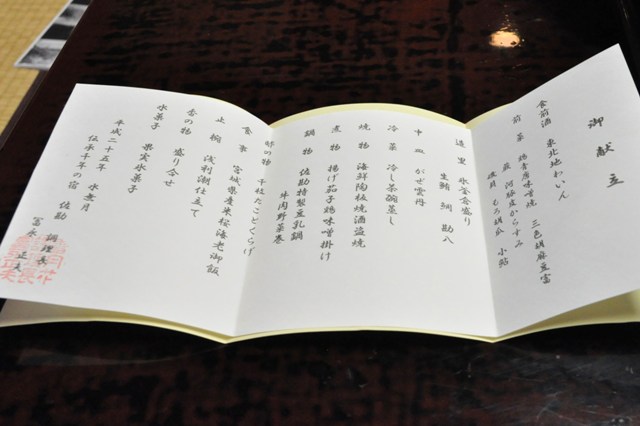 御献立
食前酒　東北地わいん
前菜　鶏青唐味噌焼　三色胡麻豆富
河豚皮からすみ
もろ胡瓜　小鮎
造里　氷釜倉盛り
生鮪　鯛　勘八
中皿　かぜ雲丹
冷菜　冷し茶碗蒸し
焼物　海鮮陶板焼酒盗焼
煮物　揚げ茄子鶏味噌掛け
鍋物　佐勘特製豆乳鍋
牛肉野菜巻
酢の物　干枝だことくらげ
食事　宮城県産米桜海老御飯
止椀　浅利潮仕立て
香の物　盛り合せ
水菓子　果実水菓子
平成二十五年　水無月
伝承千年の宿　佐勘　調理長